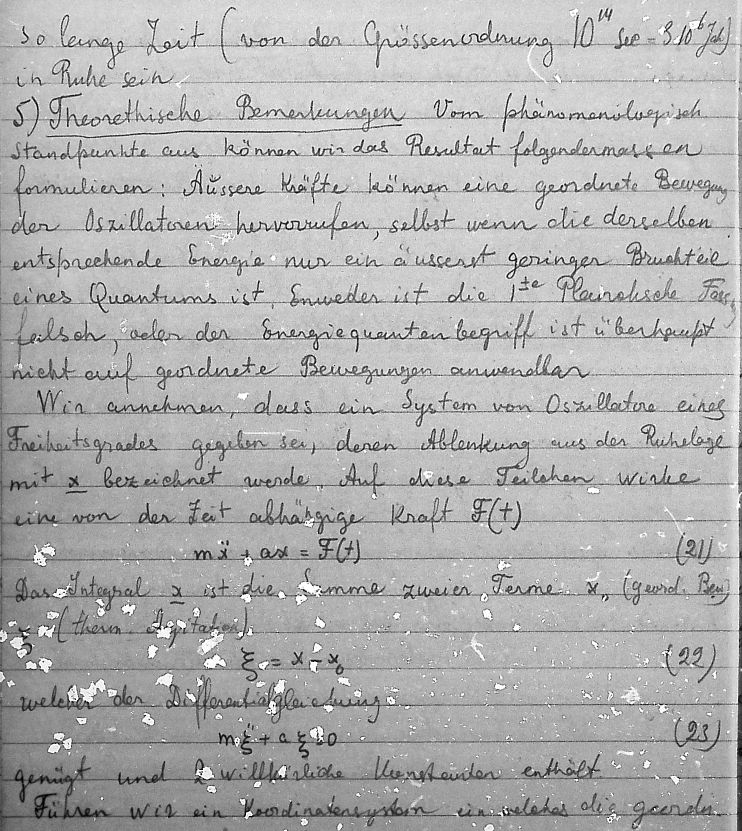 so lange Zeit (von der Grössenordnung 10¹⁴ sec = 3.10⁶ Jah)
in Ruhe sein
5) Theorethische Bemerkungen Vom phänomenologisch
Standpunkte aus können wir das Resultat folgendermassen
formulieren: Äussere Kräfte können eine geordnete Bewegung
der Oszillatoren hervorrufen, selbst wenn die derselben
entsprechende Energie nur ein äusserst geringer Bruchteil
eines Quantums ist. Enweder ist die 1ᵗᵉ Planksche
falsch, oder der Energiequantenbegriff ist überhaupt
nicht auf geordnete Bewegungen anwendbar
Wir annehmen, dass ein System von Oszillatore eines
Freiheitsgrades gegeben sei, deren Ablenkung aus der Ruhelage
mit x bezeichnet werde. Auf diese Teilchen wirke
eine von der Zeit abhängige Kraft F(t)
mẍ + ax = F(t) (21)
Das Integral x ist die Summe zweier Terme x₀ (geord. Bew)
ξ (therm. Agitation)
ξ = x - x₀ (22)
welcher der Differentialgleichung
mξ̈ + aξ = 0 (23)
genügt und 2 willkürliche Konstanten enthält.
Führen wir ein Koordinatensystem ein welches die geordn